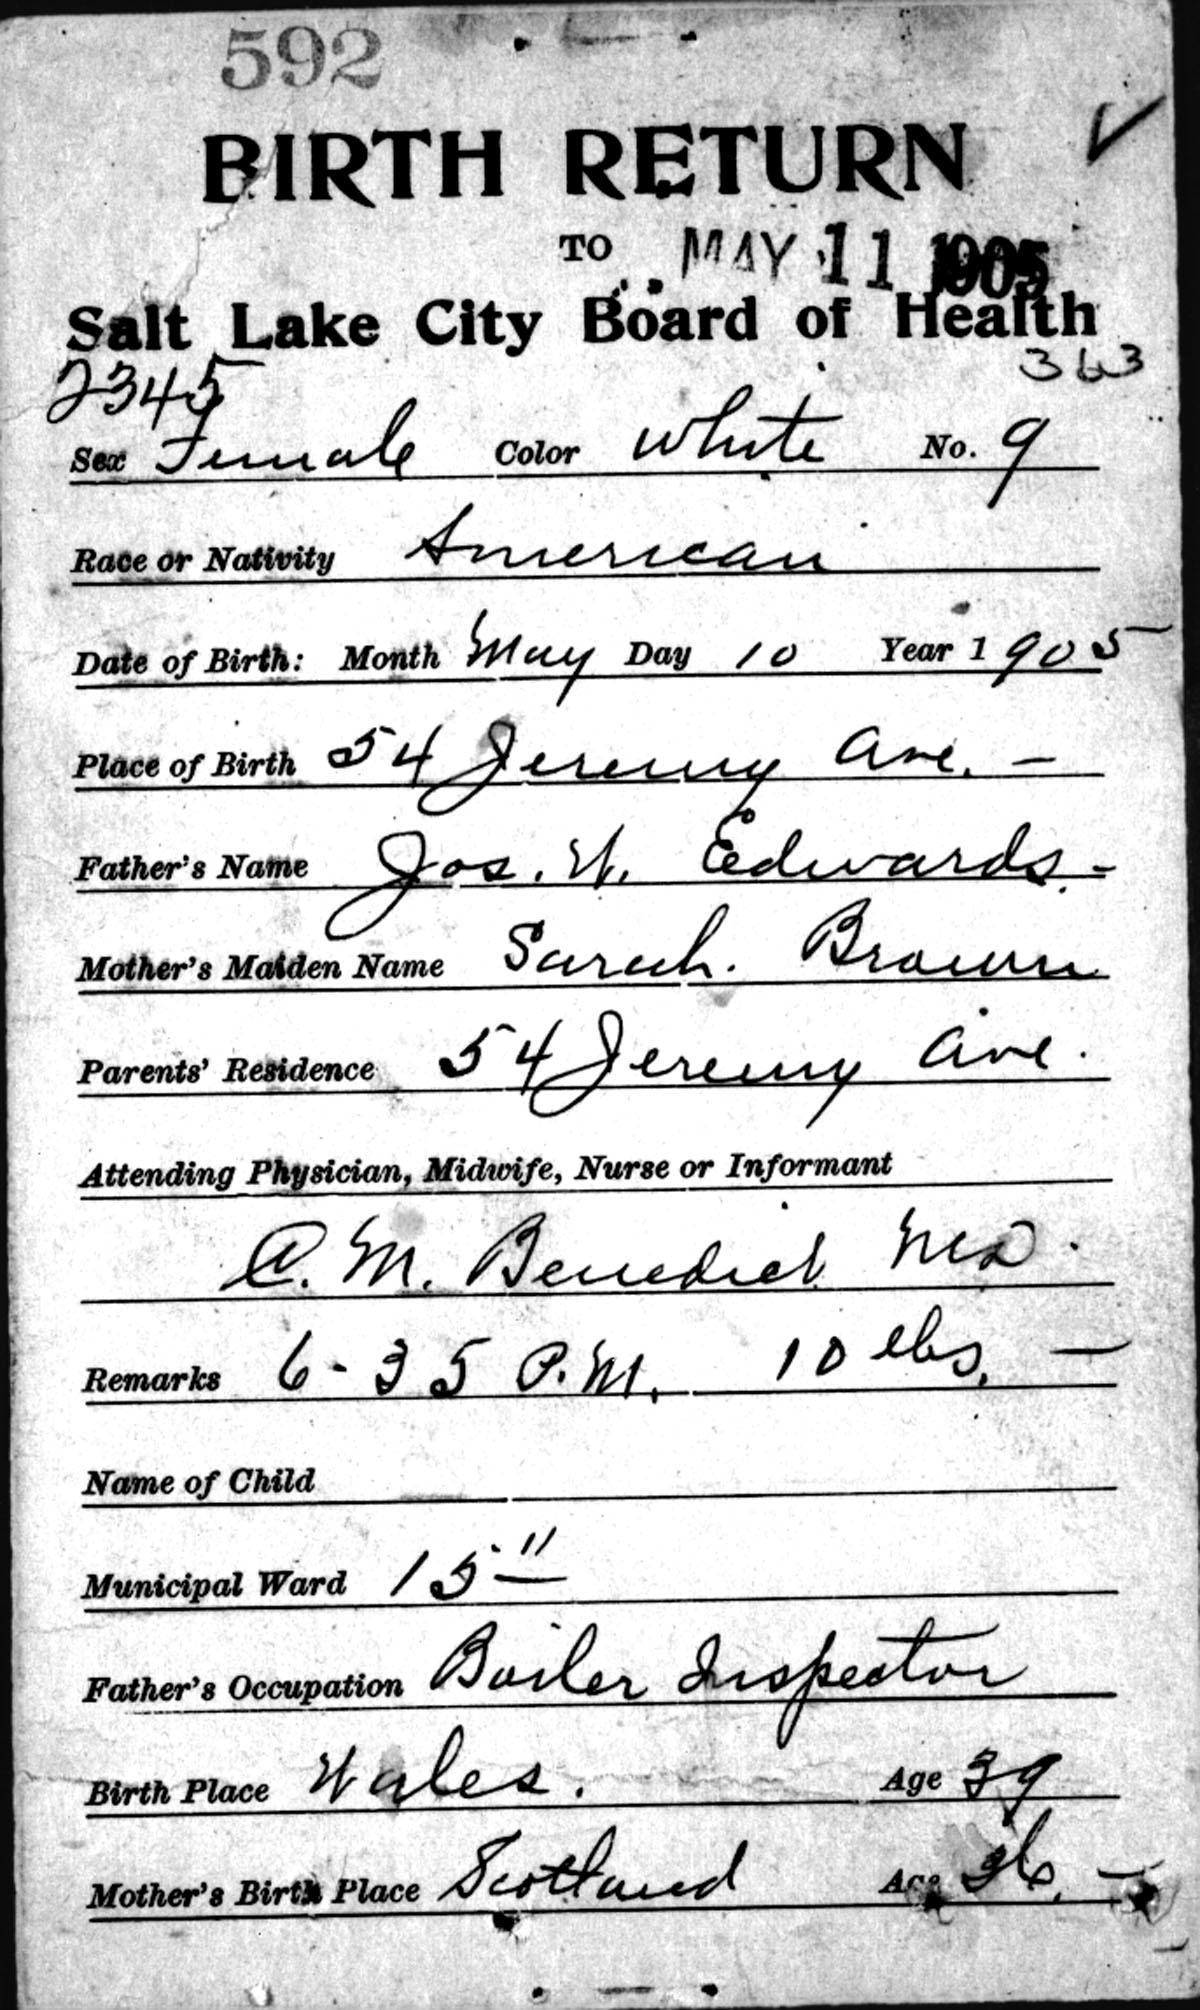 592
BIRTH RETURN
TO MAY 11 1905
Salt Lake City Board of Health
2345 363
Sex Female Color White No. 9
Race or Nativity American
Date of Birth: Month May Day 10 Year 1905
Place of Birth 54 Jeremy Ave. -
Father's Name Jos. W. Edwards. -
Mother's Maiden Name Sarah. Brown
Parents' Residence 54 Jeremy Ave.
Attending Physician, Midwife, Nurse or Informant
C. M. Benedict MD.
Remarks 6-35 P.M. 10 lbs. -
Name of Child
Municipal Ward 15"
Father's Occupation Boiler Inspector
Birth Place Wales. Age 39
Mother's Birth Place Scotland Age 36. -